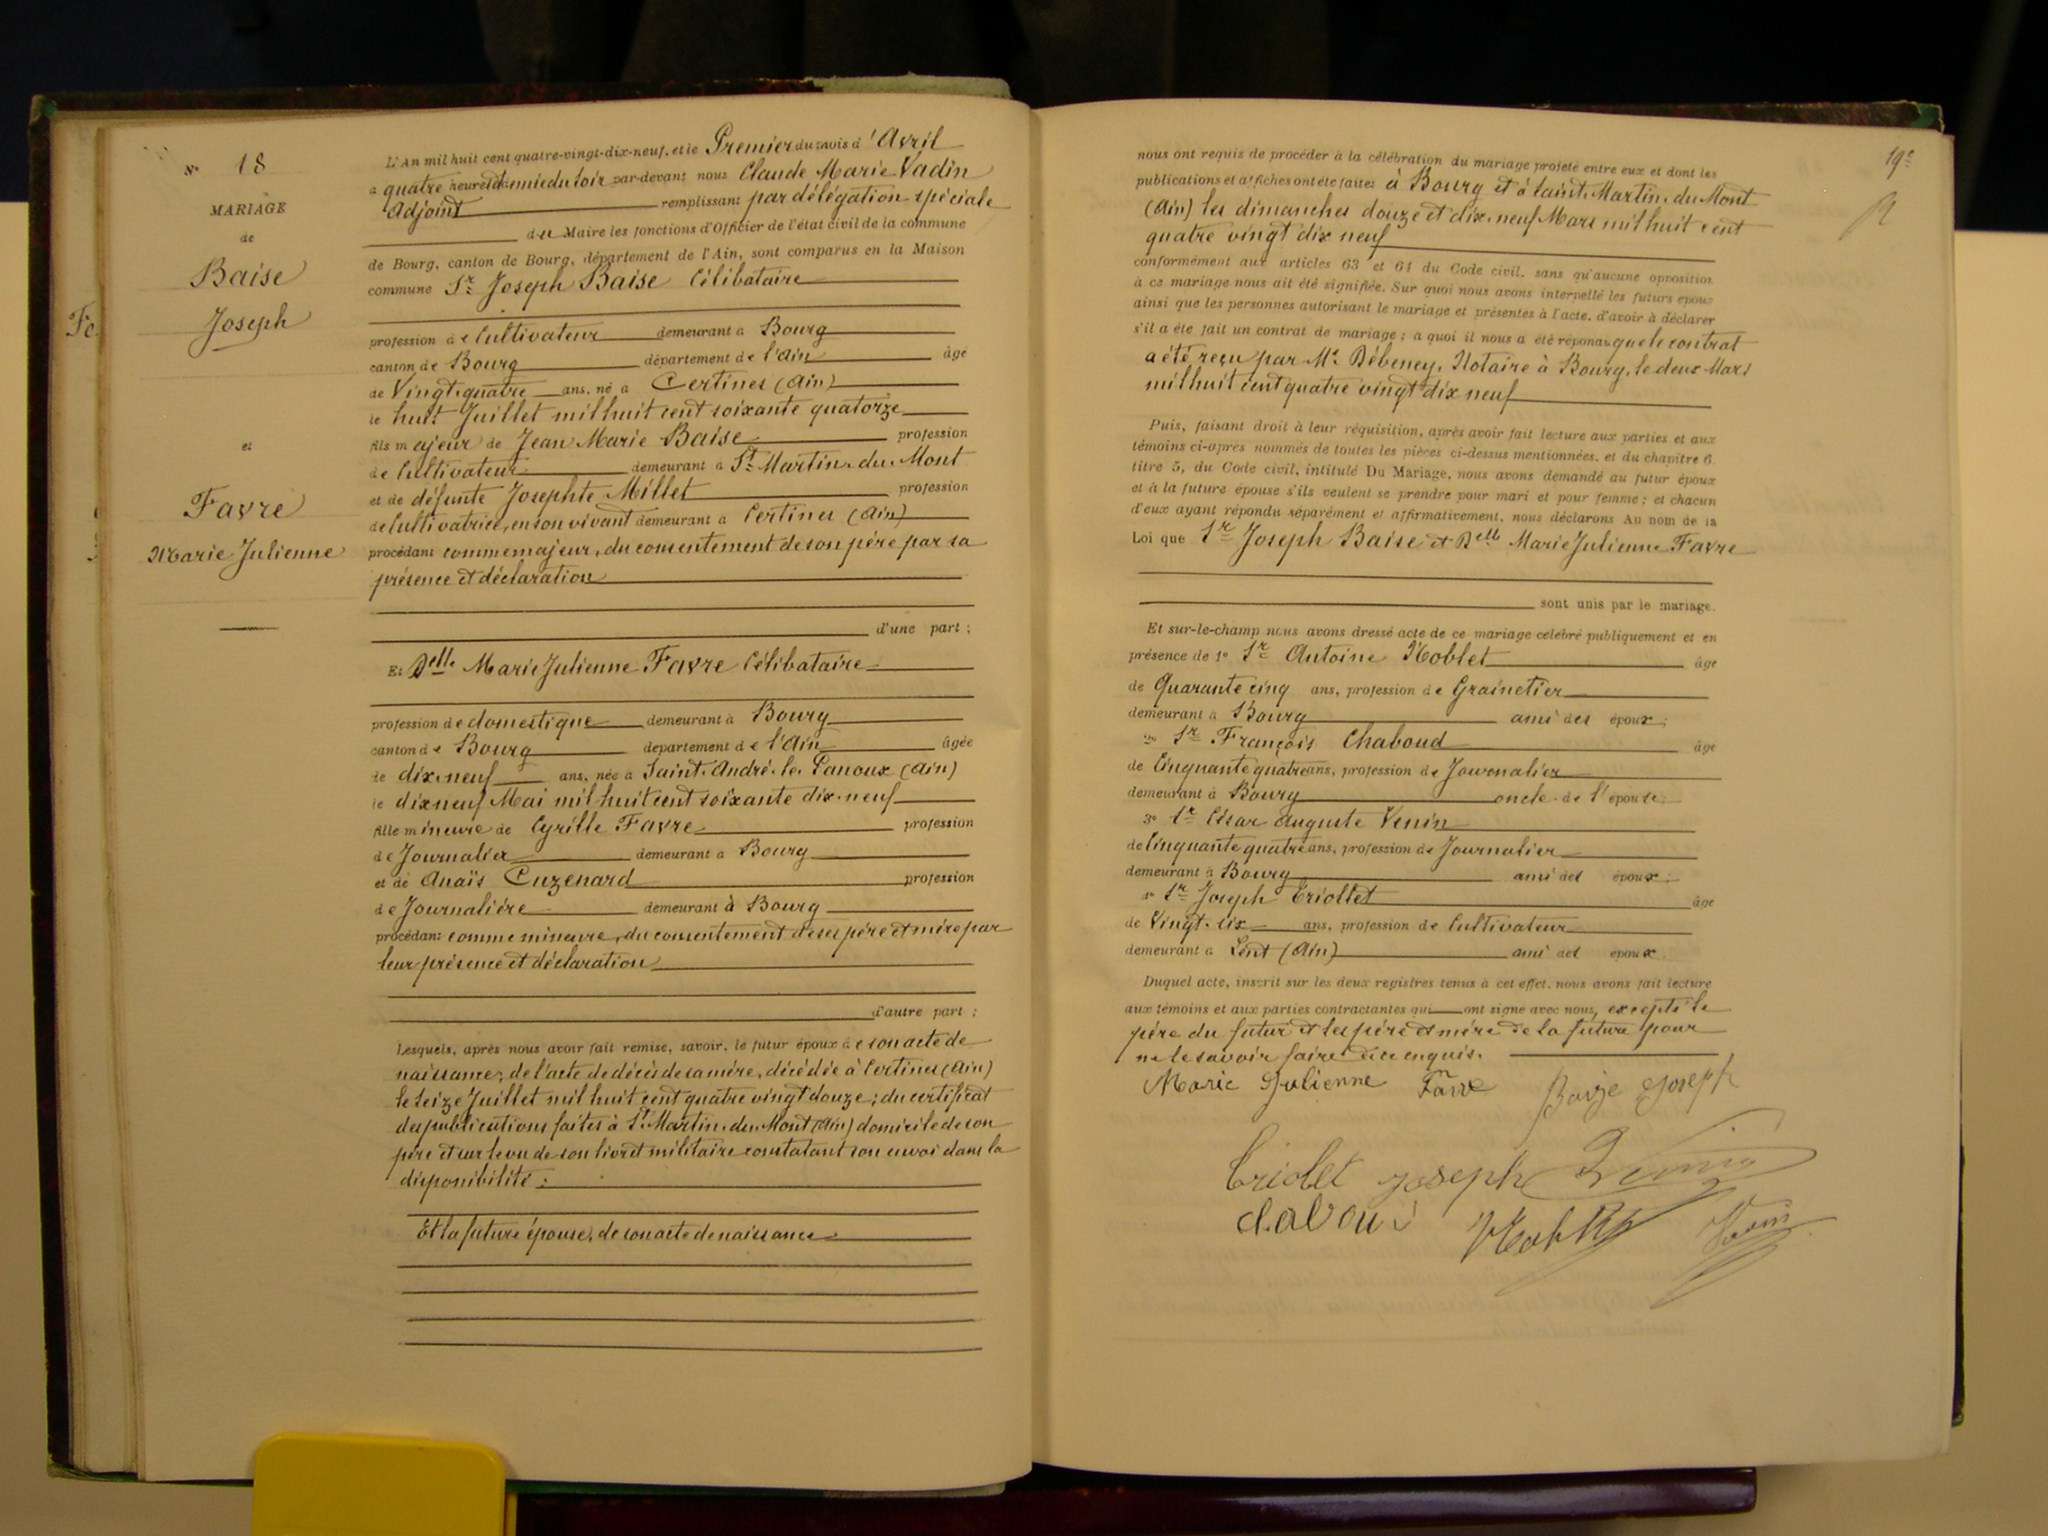 N° 18
MARIAGE
de
Baise
Joseph
et
Favre
Marie Julienne
Fe
L'An mil huit cent quatre-vingt-dix-neuf, et le Premier du mois d'Avril
à quatre heures et demie du soir par-devant nous Claude Marie Vadin
Adjoint remplissant par délégation spéciale
du Maire les fonctions d'Officier de l'état civil de la commune
de Bourg, canton de Bourg, département de l'Ain, sont comparus en la Maison
commune Sr Joseph Baise Célibataire
profession de Cultivateur demeurant à Bourg
canton de Bourg département de l'Ain âgé
de Vingt-quatre ans, né à Certines (Ain)
le huit Juillet mil huit cent soixante quatorze
fils majeur de Jean Marie Baise profession
de Cultivateur demeurant à St Martin-du-Mont
et de défunte Josephte Millet profession
de Cultivatrice, en son vivant demeurant à Certines (Ain)
procédant comme majeur, du consentement de son père par sa
présence et déclaration
d'une part ;
Et Delle Marie Julienne Favre Célibataire
profession de domestique demeurant à Bourg
canton de Bourg département de l'Ain âgée
de dix-neuf ans, née à Saint-André-le-Panoux (Ain)
le dix neuf Mai mil huit cent soixante dix-neuf
fille mineure de Cyrille Favre profession
de Journalier demeurant à Bourg
et de Anaïs Cuzenard profession
de Journalière demeurant à Bourg
procédant comme mineure, du consentement de ses père et mère par
leur présence et déclaration
d'autre part ;
Lesquels, après nous avoir fait remise, savoir, le futur époux de son acte de
naissance ; de l'acte de décès de sa mère, décédée à Certines (Ain)
le seize Juillet mil huit cent quatre vingt douze ; du certificat
des publications faites à St Martin-du-Mont (Ain) domicile de son
père et sur le vu de son livret militaire constatant son envoi dans la
disponibilité ;
Et la future épouse, de son acte de naissance
19e
nous ont requis de procéder à la célébration du mariage projeté entre eux et dont les
publications et affiches ont été faites à Bourg et à Saint-Martin-du-Mont
(Ain) les dimanches douze et dix-neuf Mars mil huit cent
quatre vingt dix neuf
conformément aux articles 63 et 64 du Code civil, sans qu'aucune opposition
à ce mariage nous ait été signifiée. Sur quoi nous avons interpellé les futurs époux
ainsi que les personnes autorisant le mariage et présentes à l'acte, d'avoir à déclarer
s'il a été fait un contrat de mariage ; à quoi il nous a été répondu que le contrat
a été reçu par Me Débeney, Notaire à Bourg, le deux Mars
mil huit cent quatre vingt dix neuf
Puis, faisant droit à leur réquisition, après avoir fait lecture aux parties et aux
témoins ci-après nommés de toutes les pièces ci-dessus mentionnées, et du chapitre 6,
titre 5, du Code civil, intitulé Du Mariage, nous avons demandé au futur époux
et à la future épouse s'ils veulent se prendre pour mari et pour femme ; et chacun
d'eux ayant répondu séparément et affirmativement, nous déclarons Au nom de la
Loi que Sr Joseph Baise et Delle Marie Julienne Favre
sont unis par le mariage.
Et sur-le-champ nous avons dressé acte de ce mariage célébré publiquement et en
présence de 1° Sr Antoine Noblet âgé
de Quarante cinq ans, profession de Grainetier
demeurant à Bourg ami des époux ;
2° Sr François Chaboud âgé
de Cinquante quatre ans, profession de Journalier
demeurant à Bourg oncle de l'épouse ;
3° Sr César Auguste Venin
de Cinquante quatre ans, profession de Journalier
demeurant à Bourg ami des époux ;
4° Sr Joseph Triollet âgé
de Vingt-six ans, profession de Cultivateur
demeurant à Lent (Ain) ami des époux.
Duquel acte, inscrit sur les deux registres tenus à cet effet, nous avons fait lecture
aux témoins et aux parties contractantes qui ont signé avec nous, excepté le
père du futur et les père et mère de la future pour
ne le savoir faire de ce enquis.
Marie Julienne Favre Baize Joseph
Triolet Joseph Venin
Noblet